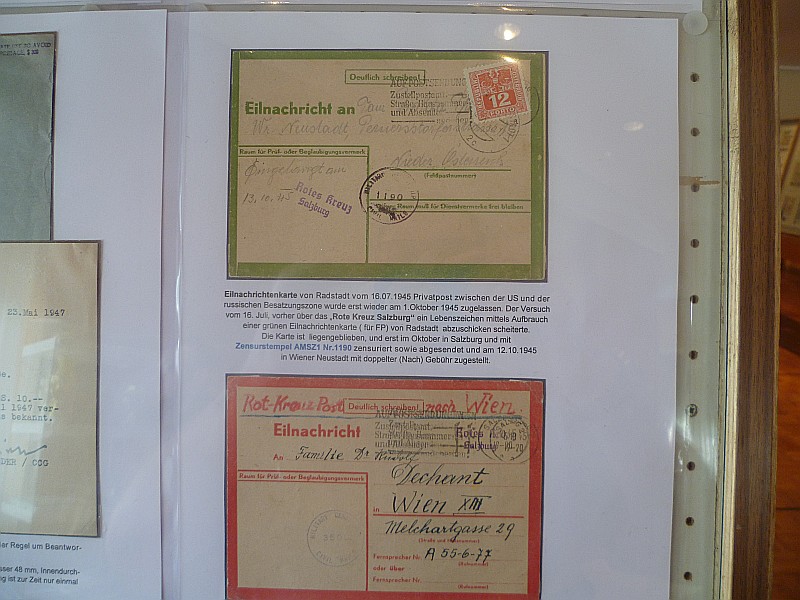 23.Mai 1947
S. 10.--
1947 ver-
s bekannt.
DER / COG
er Regel um Beantwor-
ser 48 mm, Innendurch-
ng ist zur Zeit nur einmal
Deutlich schreiben!
AUF POSTSENDUNG
Zustellpostamt
Straße, Hausnummer
und Absender
12
Eilnachricht an
Wr. Neustadt, Pernerstorfer
Raum für Prüf- oder Beglaubigungsvermerk
Nieder Österreich
(Feldpostnummer)
Eingelangt am
13.10.45
Rotes Kreuz
Salzburg
1190
Raum muß für Dienstvermerke frei bleiben
Eilnachrichtenkarte von Radstadt vom 16.07.1945 Privatpost zwischen der US und der
russischen Besatzungszone wurde erst wieder am 1.Oktober 1945 zugelassen. Der Versuch
vom 16. Juli, vorher über das „Rote Kreuz Salzburg“ ein Lebenszeichen mittels Aufbrauch
einer grünen Eilnachrichtenkarte ( für FP) von Radstadt abzuschicken scheiterte.
Die Karte ist liegengeblieben, und erst im Oktober in Salzburg und mit
Zensurstempel AMSZ1 Nr.1190 zensuriert sowie abgesendet und am 12.10.1945
in Wiener Neustadt mit doppelter (Nach) Gebühr zugestellt.
Rot-Kreuz Post Deutlich schreiben! nach Wien
AUF POSTSENDUNG
Eilnachricht
Rotes
Salzburg
An Familie Dr Rudolf
Raum für Prüf- oder Beglaubigungsvermerk
Dechant
in Wien XIII
Melchartgasse 29
(Straße und Hausnummer)
Fernsprecher Nr. A 55-6-77
(Rufnummer)
oder über
Fernsprecher Nr.
(Rufnummer)